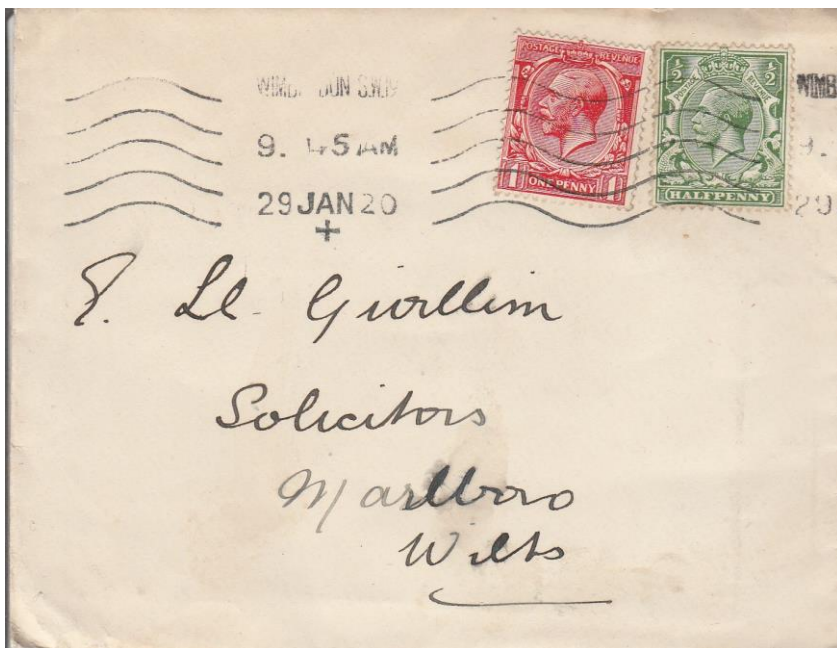 WIMBLEDON S.W.19
9.45 AM
29 JAN 20
+
WIMB
9.
29
POSTAGE REVENUE
1d
ONE PENNY
1 1
½ ½
POSTAGE REVENUE
HALFPENNY
E. Ll. Gwillim
Solicitors
Marlboro
Wilts